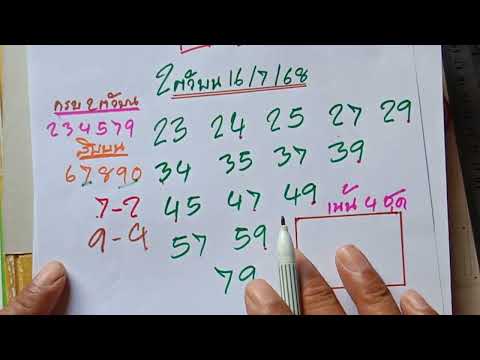 2 ตัวบน 16/7/68
กรอบ 2 ตัวบน
234579 23 24 25 27 29
วิ่งบน
67890 34 35 37 39
7-2 45 47 49
เน้น 4 ชุด
9-4 57 59
79